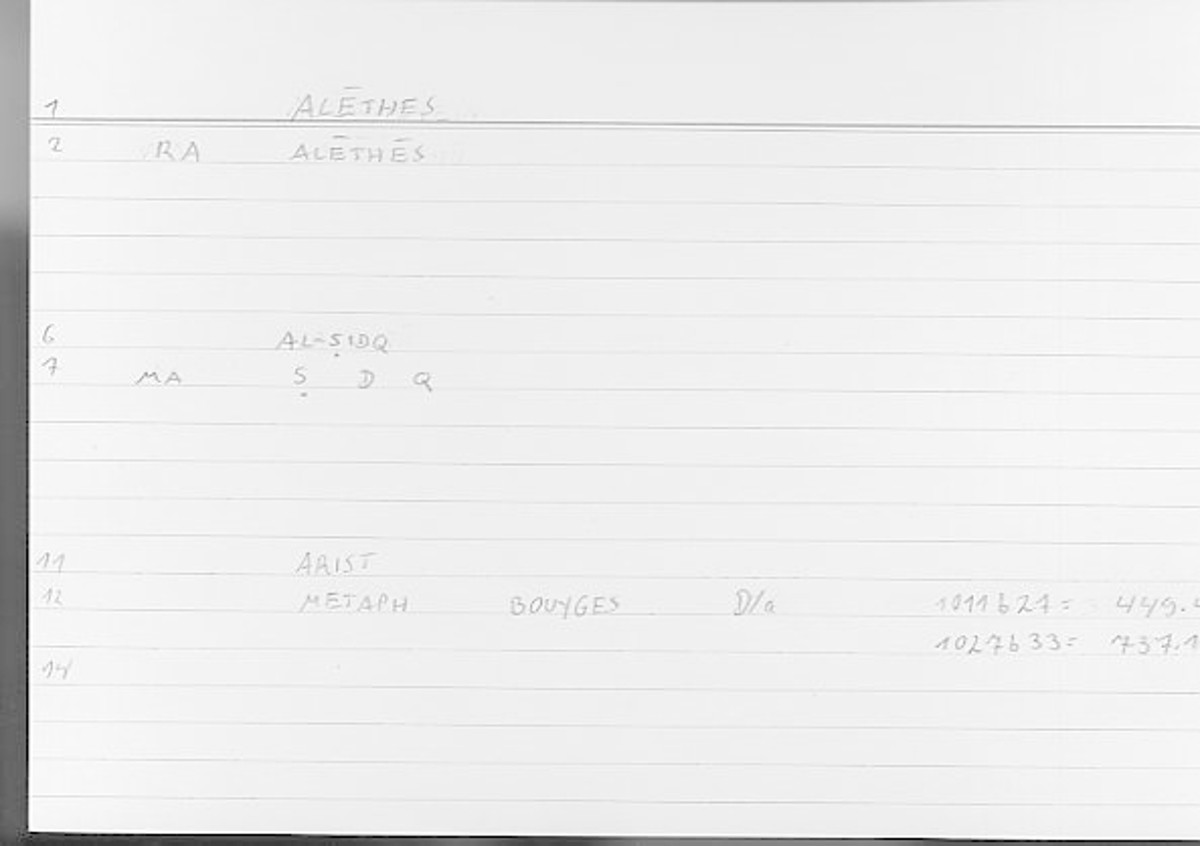 1 ALĒTHES
2 RA ALĒTHĒS
6 AL-ṢIDQ
7 MA Ṣ D Q
11 ARIST
12 METAPH BOUYGES D/a 1011b27= 449.
1027b33= 737.1
14